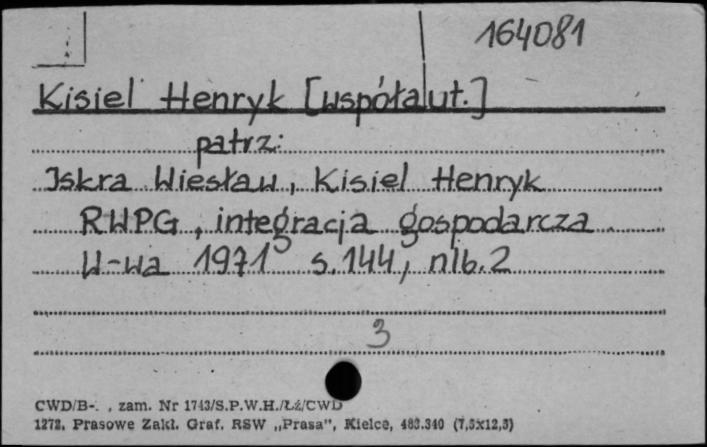 164081
Kisiel Henryk [współaut.]
patrz:
Iskra Wiesław, Kisiel Henryk
RWPG, integracja gospodarcza.
W-wa 1971 s. 144, nlb. 2
3
CWD/B-. , zam. Nr 1743/S.P.W.H./Łź/CWD
1272. Prasowe Zakł. Graf. RSW „Prasa", Kielce, 483.340 (7,5x12,5)